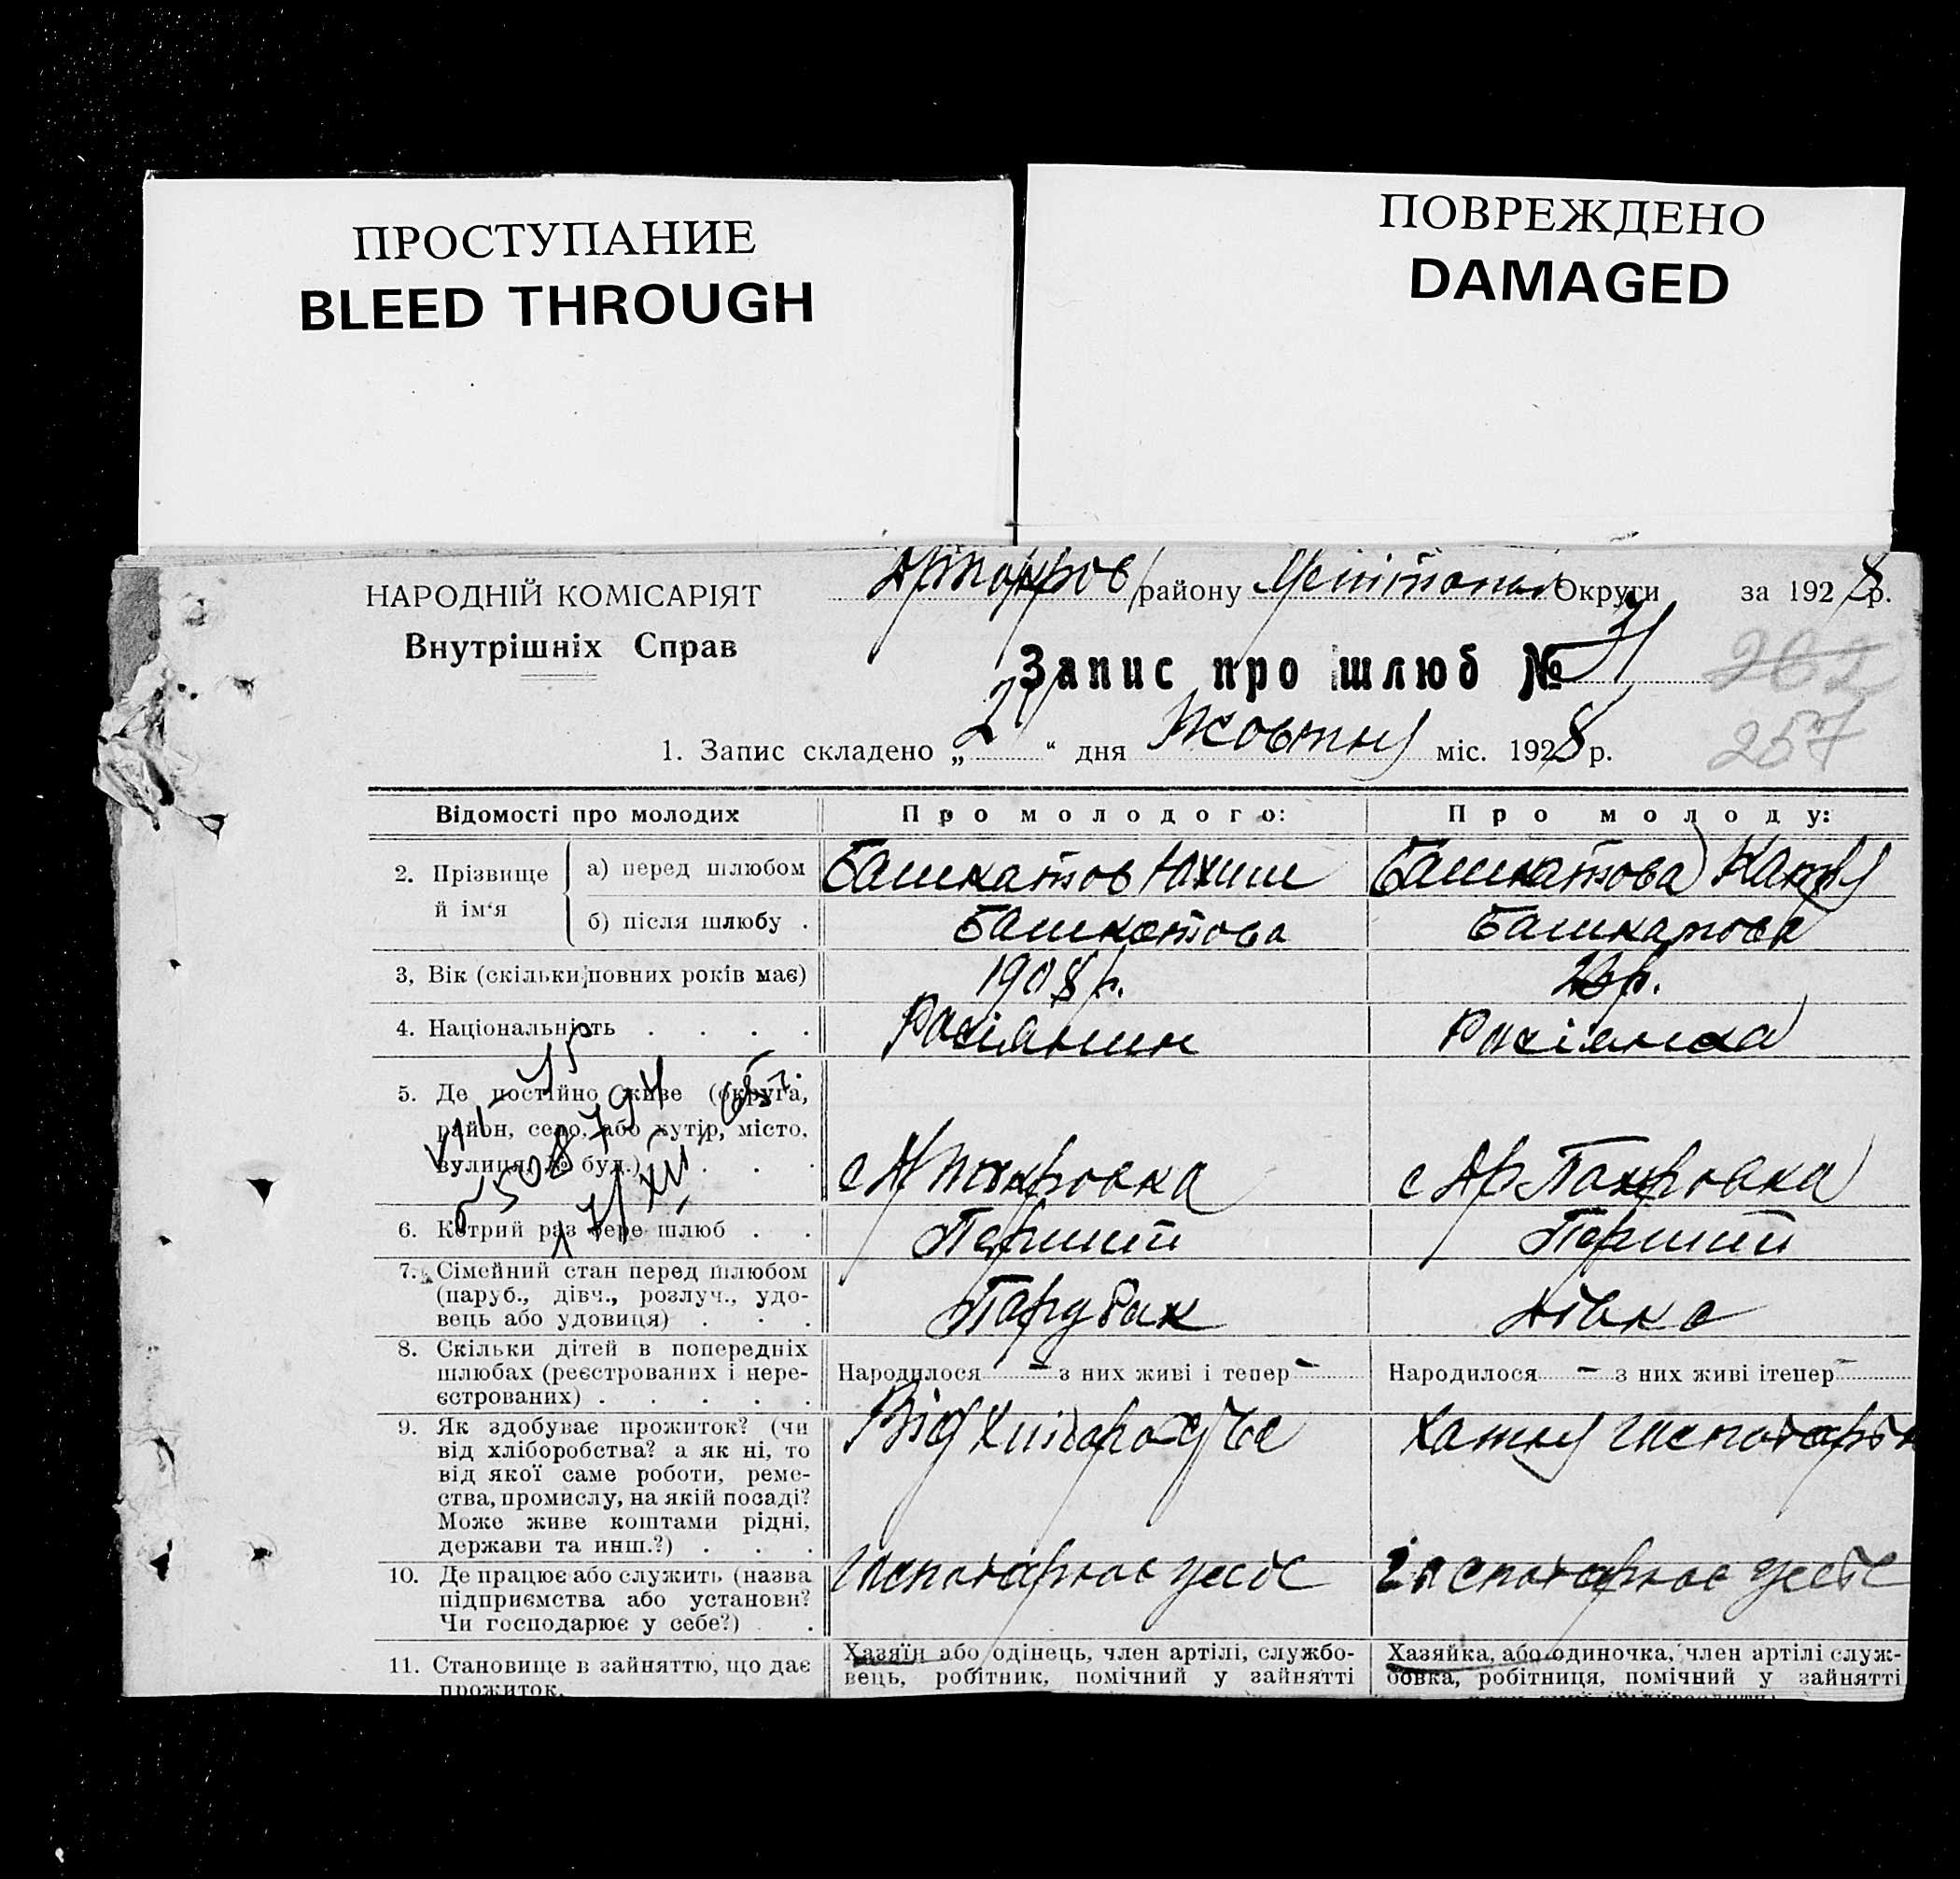 ПРОСТУПАНИЕ
BLEED THROUGH
ПОВРЕЖДЕНО
DAMAGED
НАРОДНІЙ КОМІСАРІЯТ
Внутрішніх Справ
району Округи за 1928 р.
Запис про шлюб № 31
262
257
1. Запис складено „ “ дня Жовтня міс. 1928 р.
Відомості про молодих
Про молодого:
Про молоду:
2. Прізвище й ім‘я
а) перед шлюбом
Башкатов Юхим
Башкатова Катря
б) після шлюбу .
Башкатова
Башкатова
3, Вік (скільки повних років має)
1908 р.
20 р.
4. Національність . . . .
Расіянин
Расіянка
5. Де постійно живе (округа,
район, село, або хутір, місто,
вулиця, № буд.) . . .
с Ар Покровка
с Ар Покровка
6. Котрий раз бере шлюб . .
Перший
Перший
7. Сімейний стан перед шлюбом
(паруб., дівч., розлуч., удо-
вець або удовиця) . . .
Парубак
Дівка
8. Скільки дітей в попередніх
шлюбах (реєстрованих і нере-
єстрованих) . . . . .
Народилося – з них живі і тепер –
Народилося – з них живі ітепер –
9. Як здобуває прожиток? (чи
від хліборобства? а як ні, то
від якої саме роботи, реме-
ства, промислу, на якій посаді?
Може живе коштами рідні,
держави та инш.?) . . .
Від
Хатня
10. Де працює або служить (назва
підприємства або установи?
Чи господарює у себе?) .
Гаспотарює усебе
Гаспотарює усебе
11. Становище в зайняттю, що дає
прожиток.
Хазяїн або одінець, член артілі, службо-
вець, робітник, помічний у зайнятті
Хазяйка, або одиночка, член артілі служ-
бовка, робітниця, помічний у зайнятті